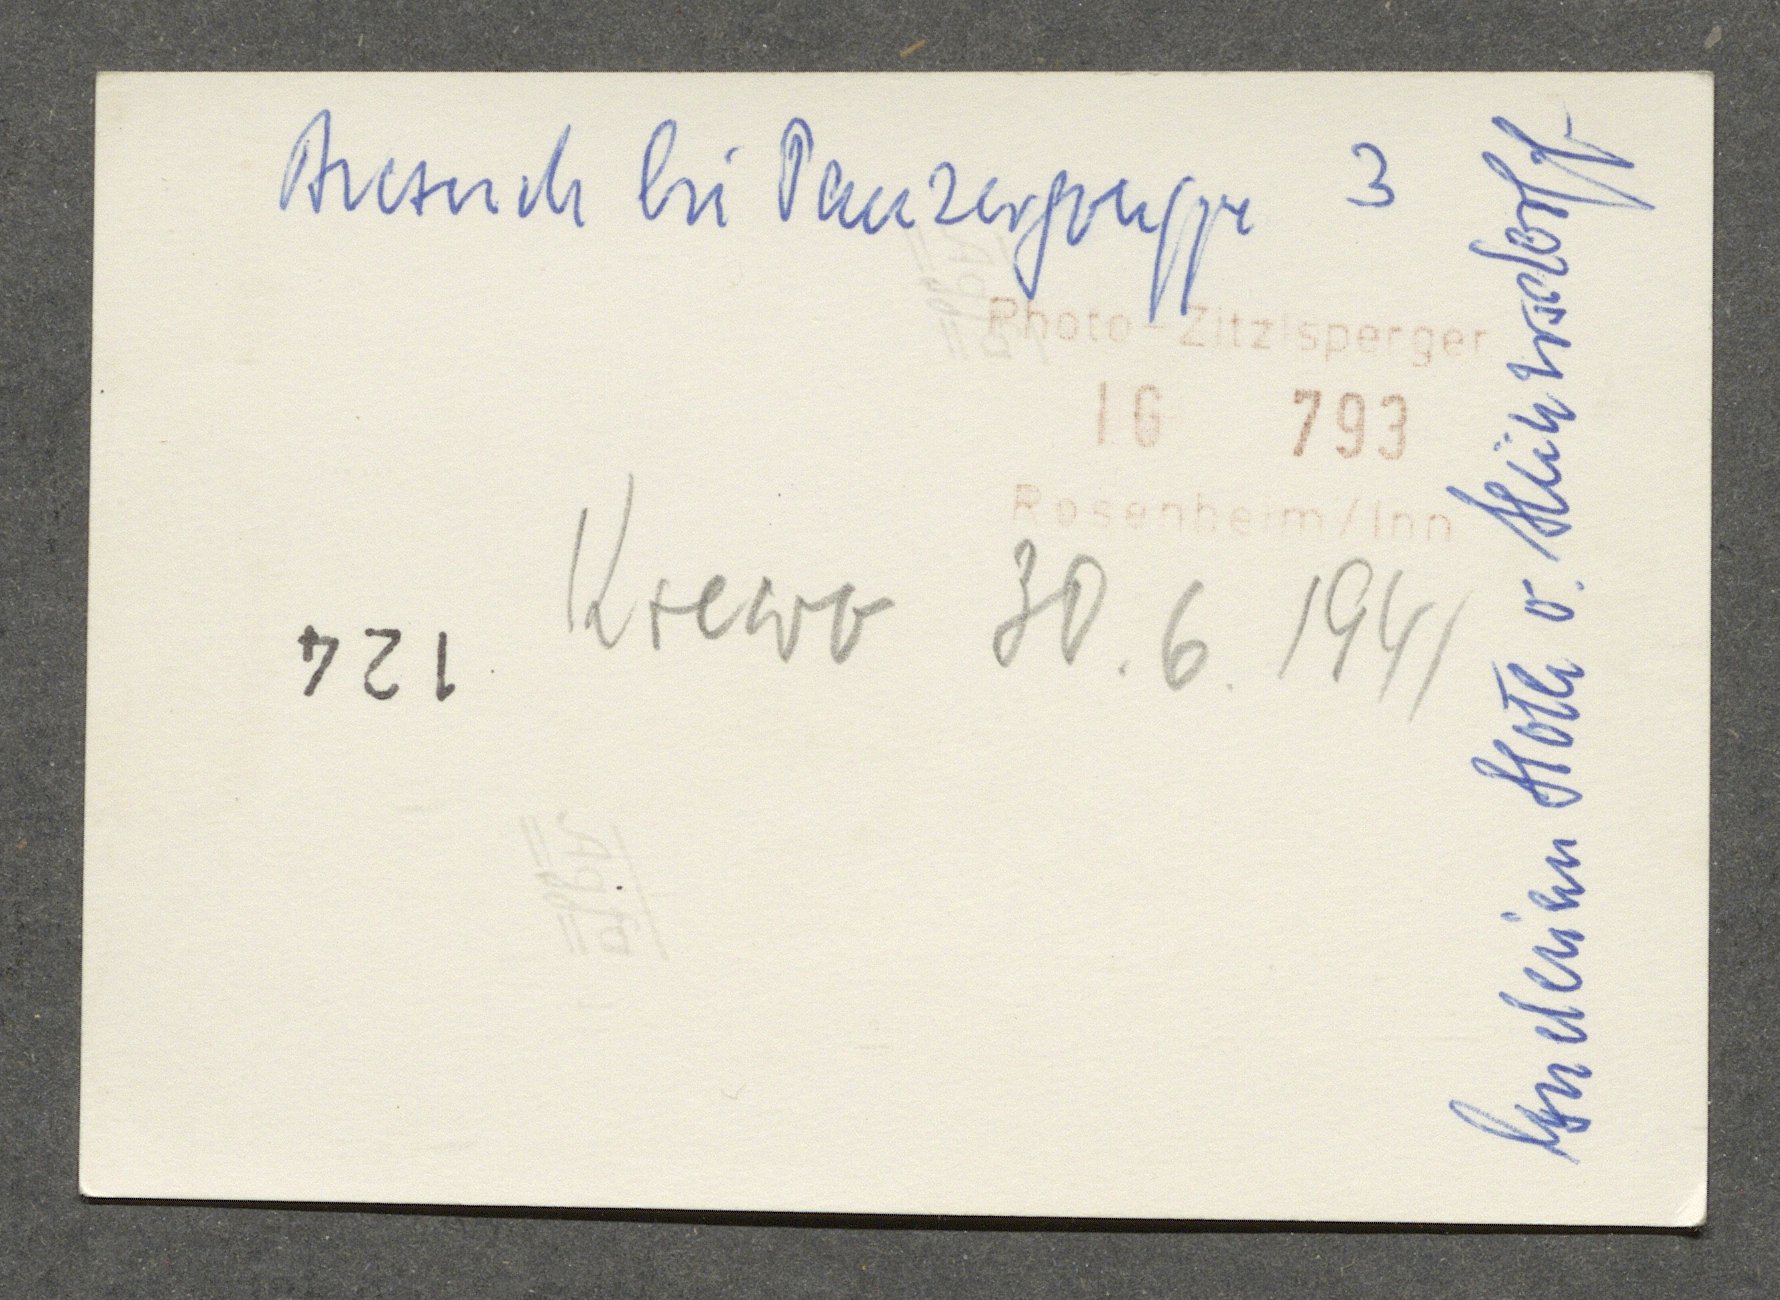 Besuch bei Panzergruppe 3
Photo-Zitzlsperger
IG 793
Rosenheim/Inn
Krewo 30.6.1941
124
Hoth v. Hünersdorff
Agfa
Agfa